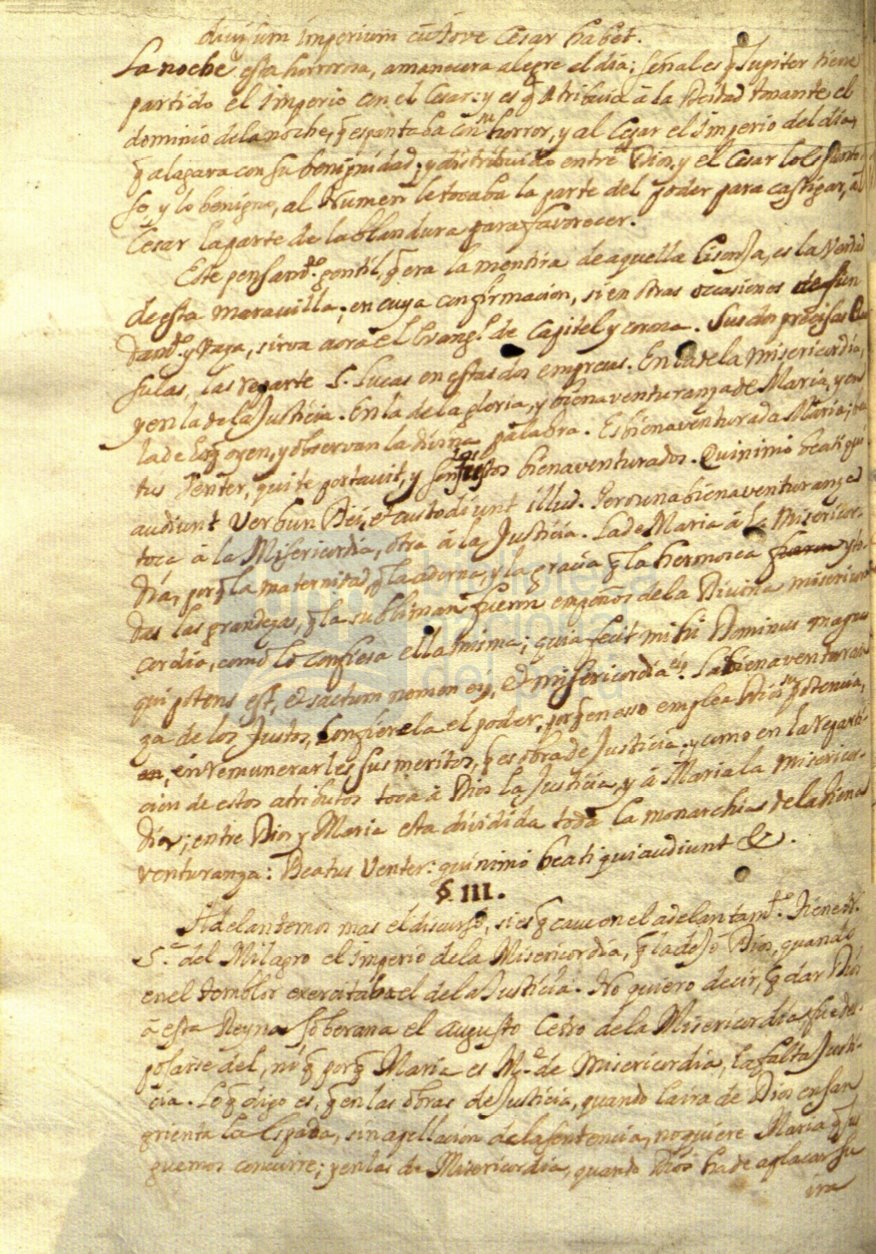 divisum imperium cū Jove Cesar habet.
La noche esta horrorosa, amanecera alegre el dia; señal es q̃ Jupiter tiene
partido el Imperio con el Cesar: y es q̃ atribuia â la Deidad tonante el
dominio de la noche, q̃ espantaba con su horror, y al Cesar el imperio del dia,
q̃ alagara con su benignidad; y distribuido entre Dios, y el Cesar lo espanto
so, y lo benigno, al Numen le tocaba la parte del poder para castigar, al
Cesar la parte de la blandura para favorecer.
Este pensamto. gentil, q̃ era la mentira de aquella lisonja, es la verdad
de esta maravilla; en cuya confirmacion, si en otras occasiones de fun
damto. y vaza, sirva aora el Evangº. de Capitel y corona. Sus dos precisas clau
sulas, las reparte S. Lucas en estas dos empresas. En la de la misericordia,
y en la de la Justicia. En la de la gloria, y bienaventuranza de Maria, y en
la de los q̃ oyen, y observan la divina palabra. Es bienaventurada Maria; bea
tus Venter, qui te portavit, y son justos bienaventurados. Quinimô beati qui
audiunt Verbun Dei, et custodiunt illud. Pero una bienaventuranza
toca â la Misericordia, otra â la Justicia. La de Maria â la Misericor-
dia, por q̃ la maternidad q̃ la adorna, y la gracia q̃ la hermosea y to
das las grandezas, q̃ la subliman fueron empeños de la Divina misericor
cordia, como lo confiesa ella misma; quia fecit mihi Dominus magna
qui potens est, et sactum nomen ejs, et misericordia ejs. La bienaventuran
za de los Justos, confierela el poder, porq̃ en esso emplea Dios su potencia,
en remunerarles sus meritos, q̃ es obra de Justicia, y como en la reparti
cion de estos atributos toca â Dios la Justicia, y â Maria la Misericor-
dia; entre Dios y Maria esta dividida toda la monarchia de la biena
venturanza: Beatus Venter: quinimô beati qui audiunt &.
§. III.
Adelantemos mas el discurso, si es q̃ cave en el adelantamto. Tiene N.
Sra. del Milagro el imperio de la Misericordia, q̃ la dejo Dios, quando
en el temblor exercitaba el de la Justicia. No quiero decir, q̃ dar Dios
â esta Reyna soberana el augusto Cetro de la Misericordia, fue des-
posarse del, ni q̃ por q̃ Maria es Me. de Misericordia, la falta Justi-
cia. Lo q̃ digo es, q̃ en las obras de Justicia, quando la ira de Dios ensan
grienta la Espada, sin apellacion de la sentencia, no quiere Maria q̃ sus
guemos concurre; y en las de Misericordia, quando Dios ha de aplacar su
ira